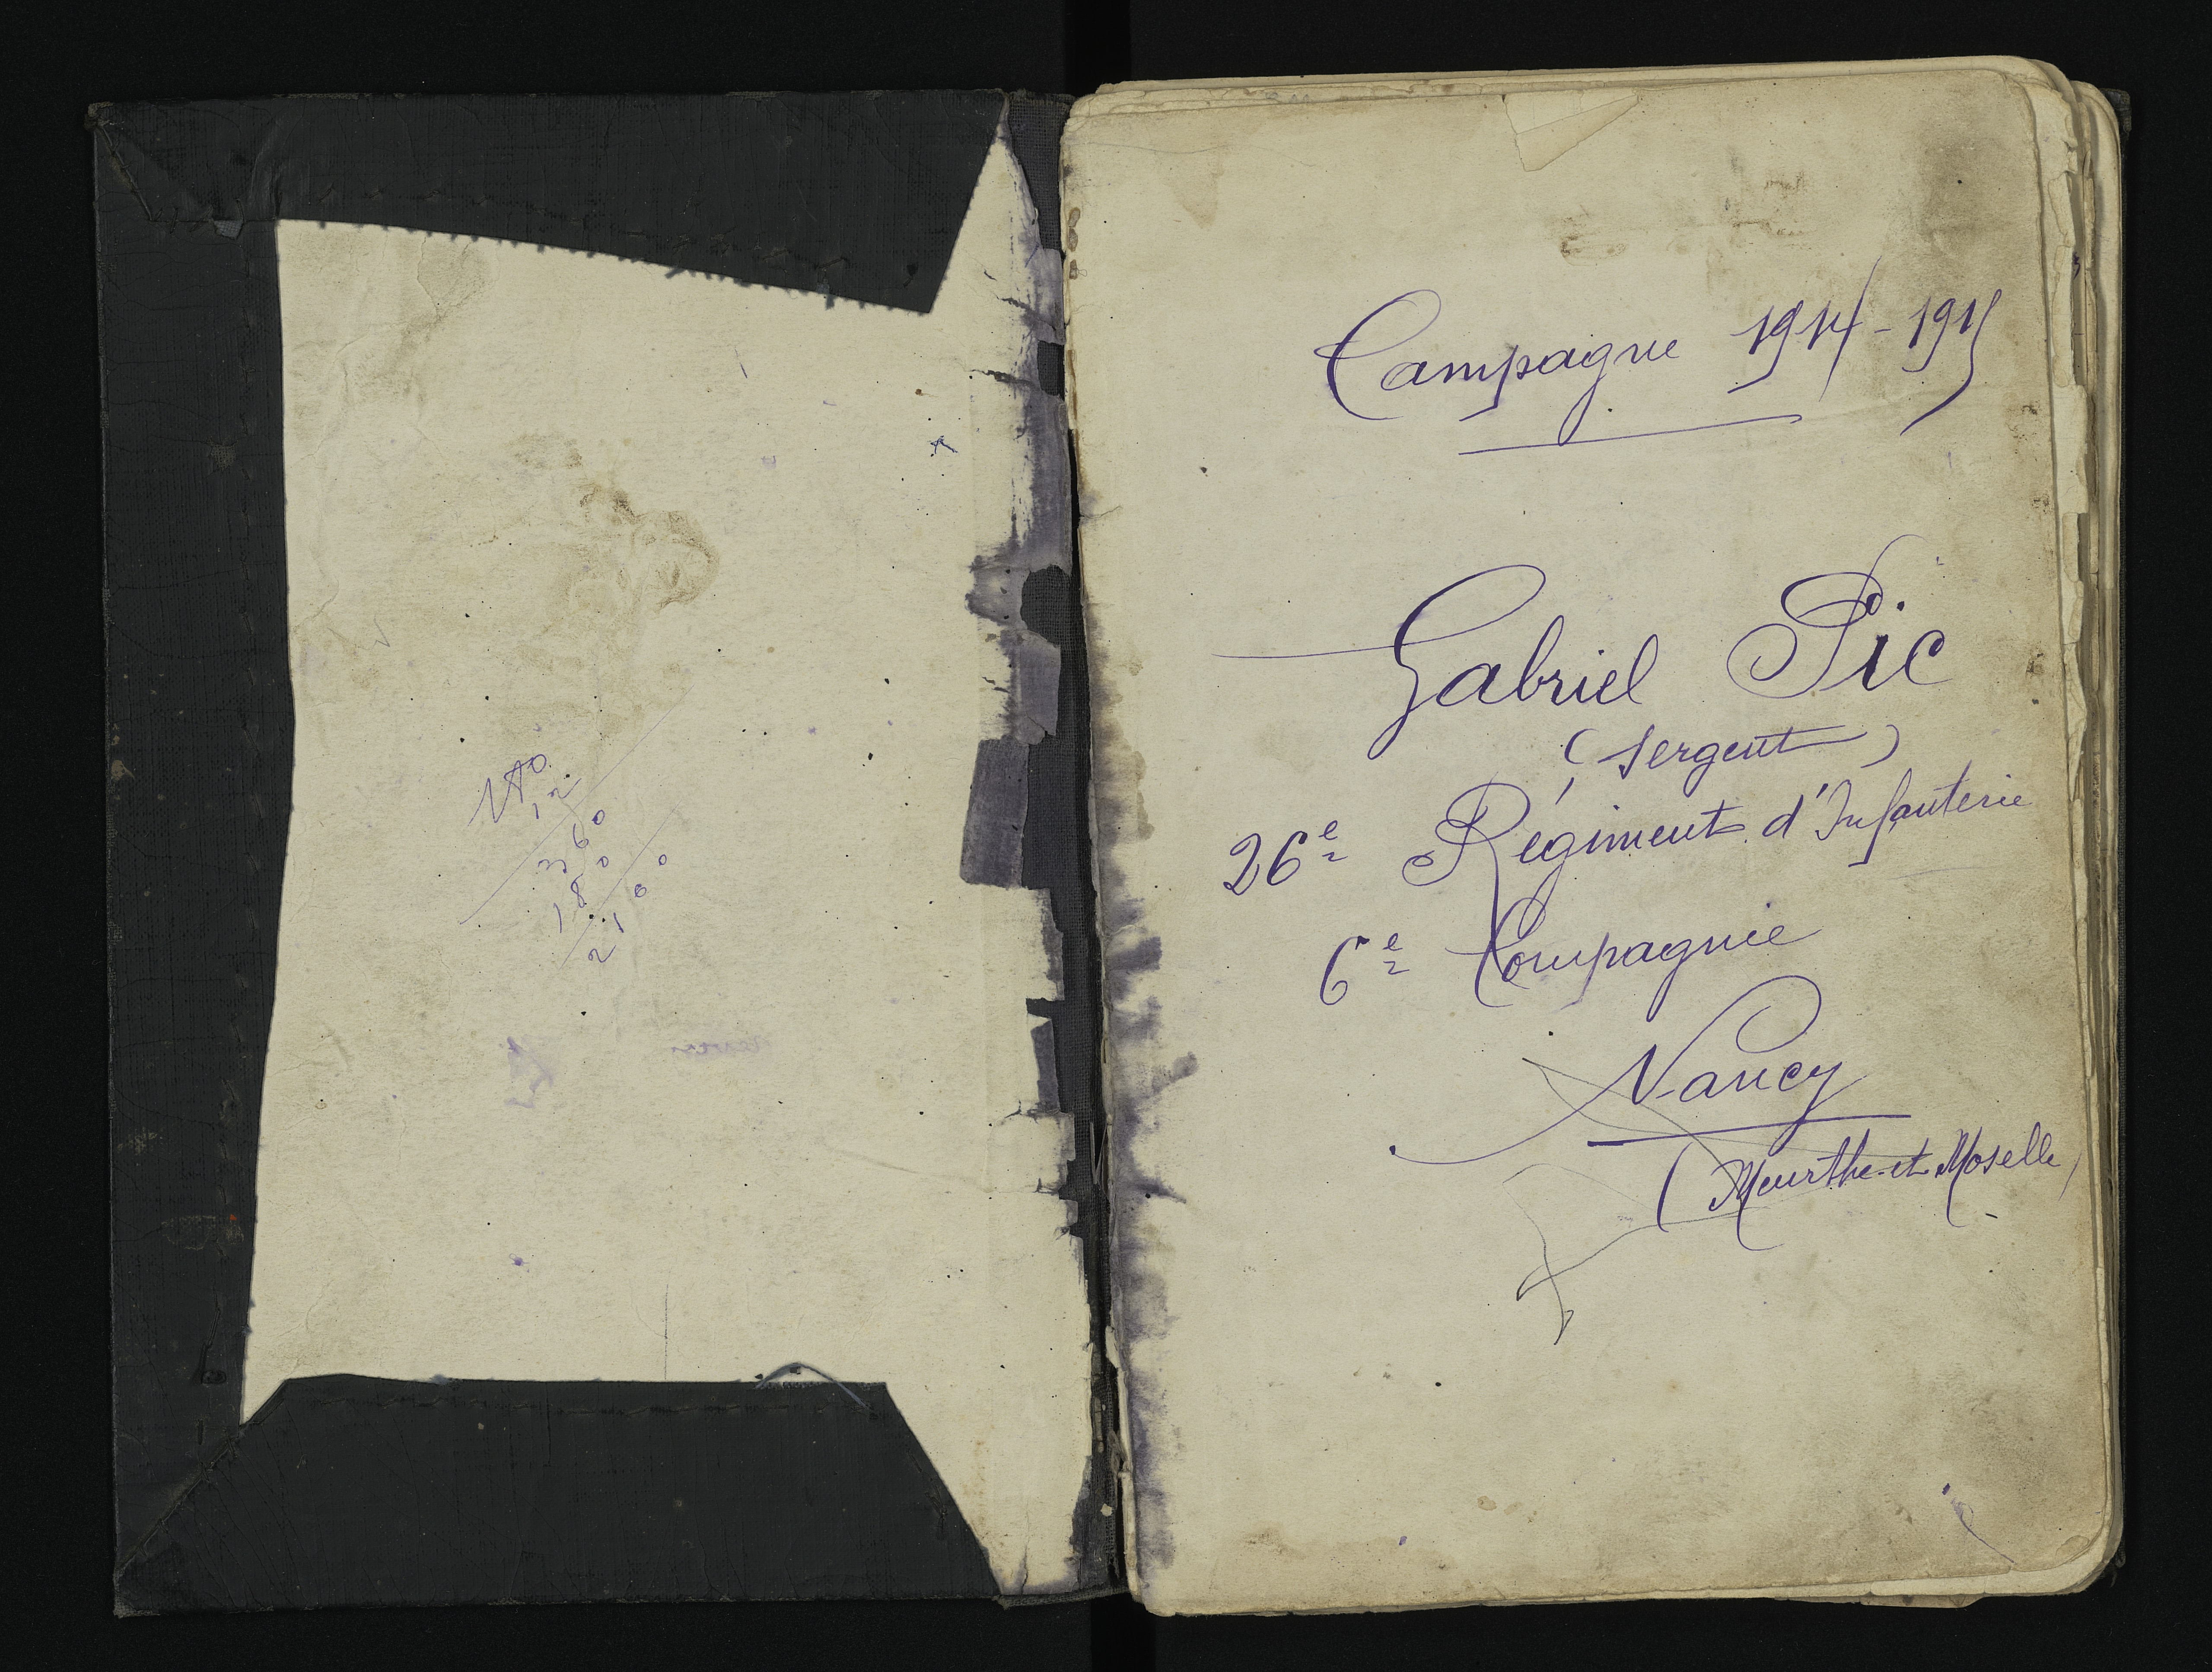 12
360
180
2100
Campagne 1914-1915
Gabriel Pic
(Sergent)
26e Régiment d'Infanterie
6e Compagnie
Nancy
(Meurthe-et-Moselle)